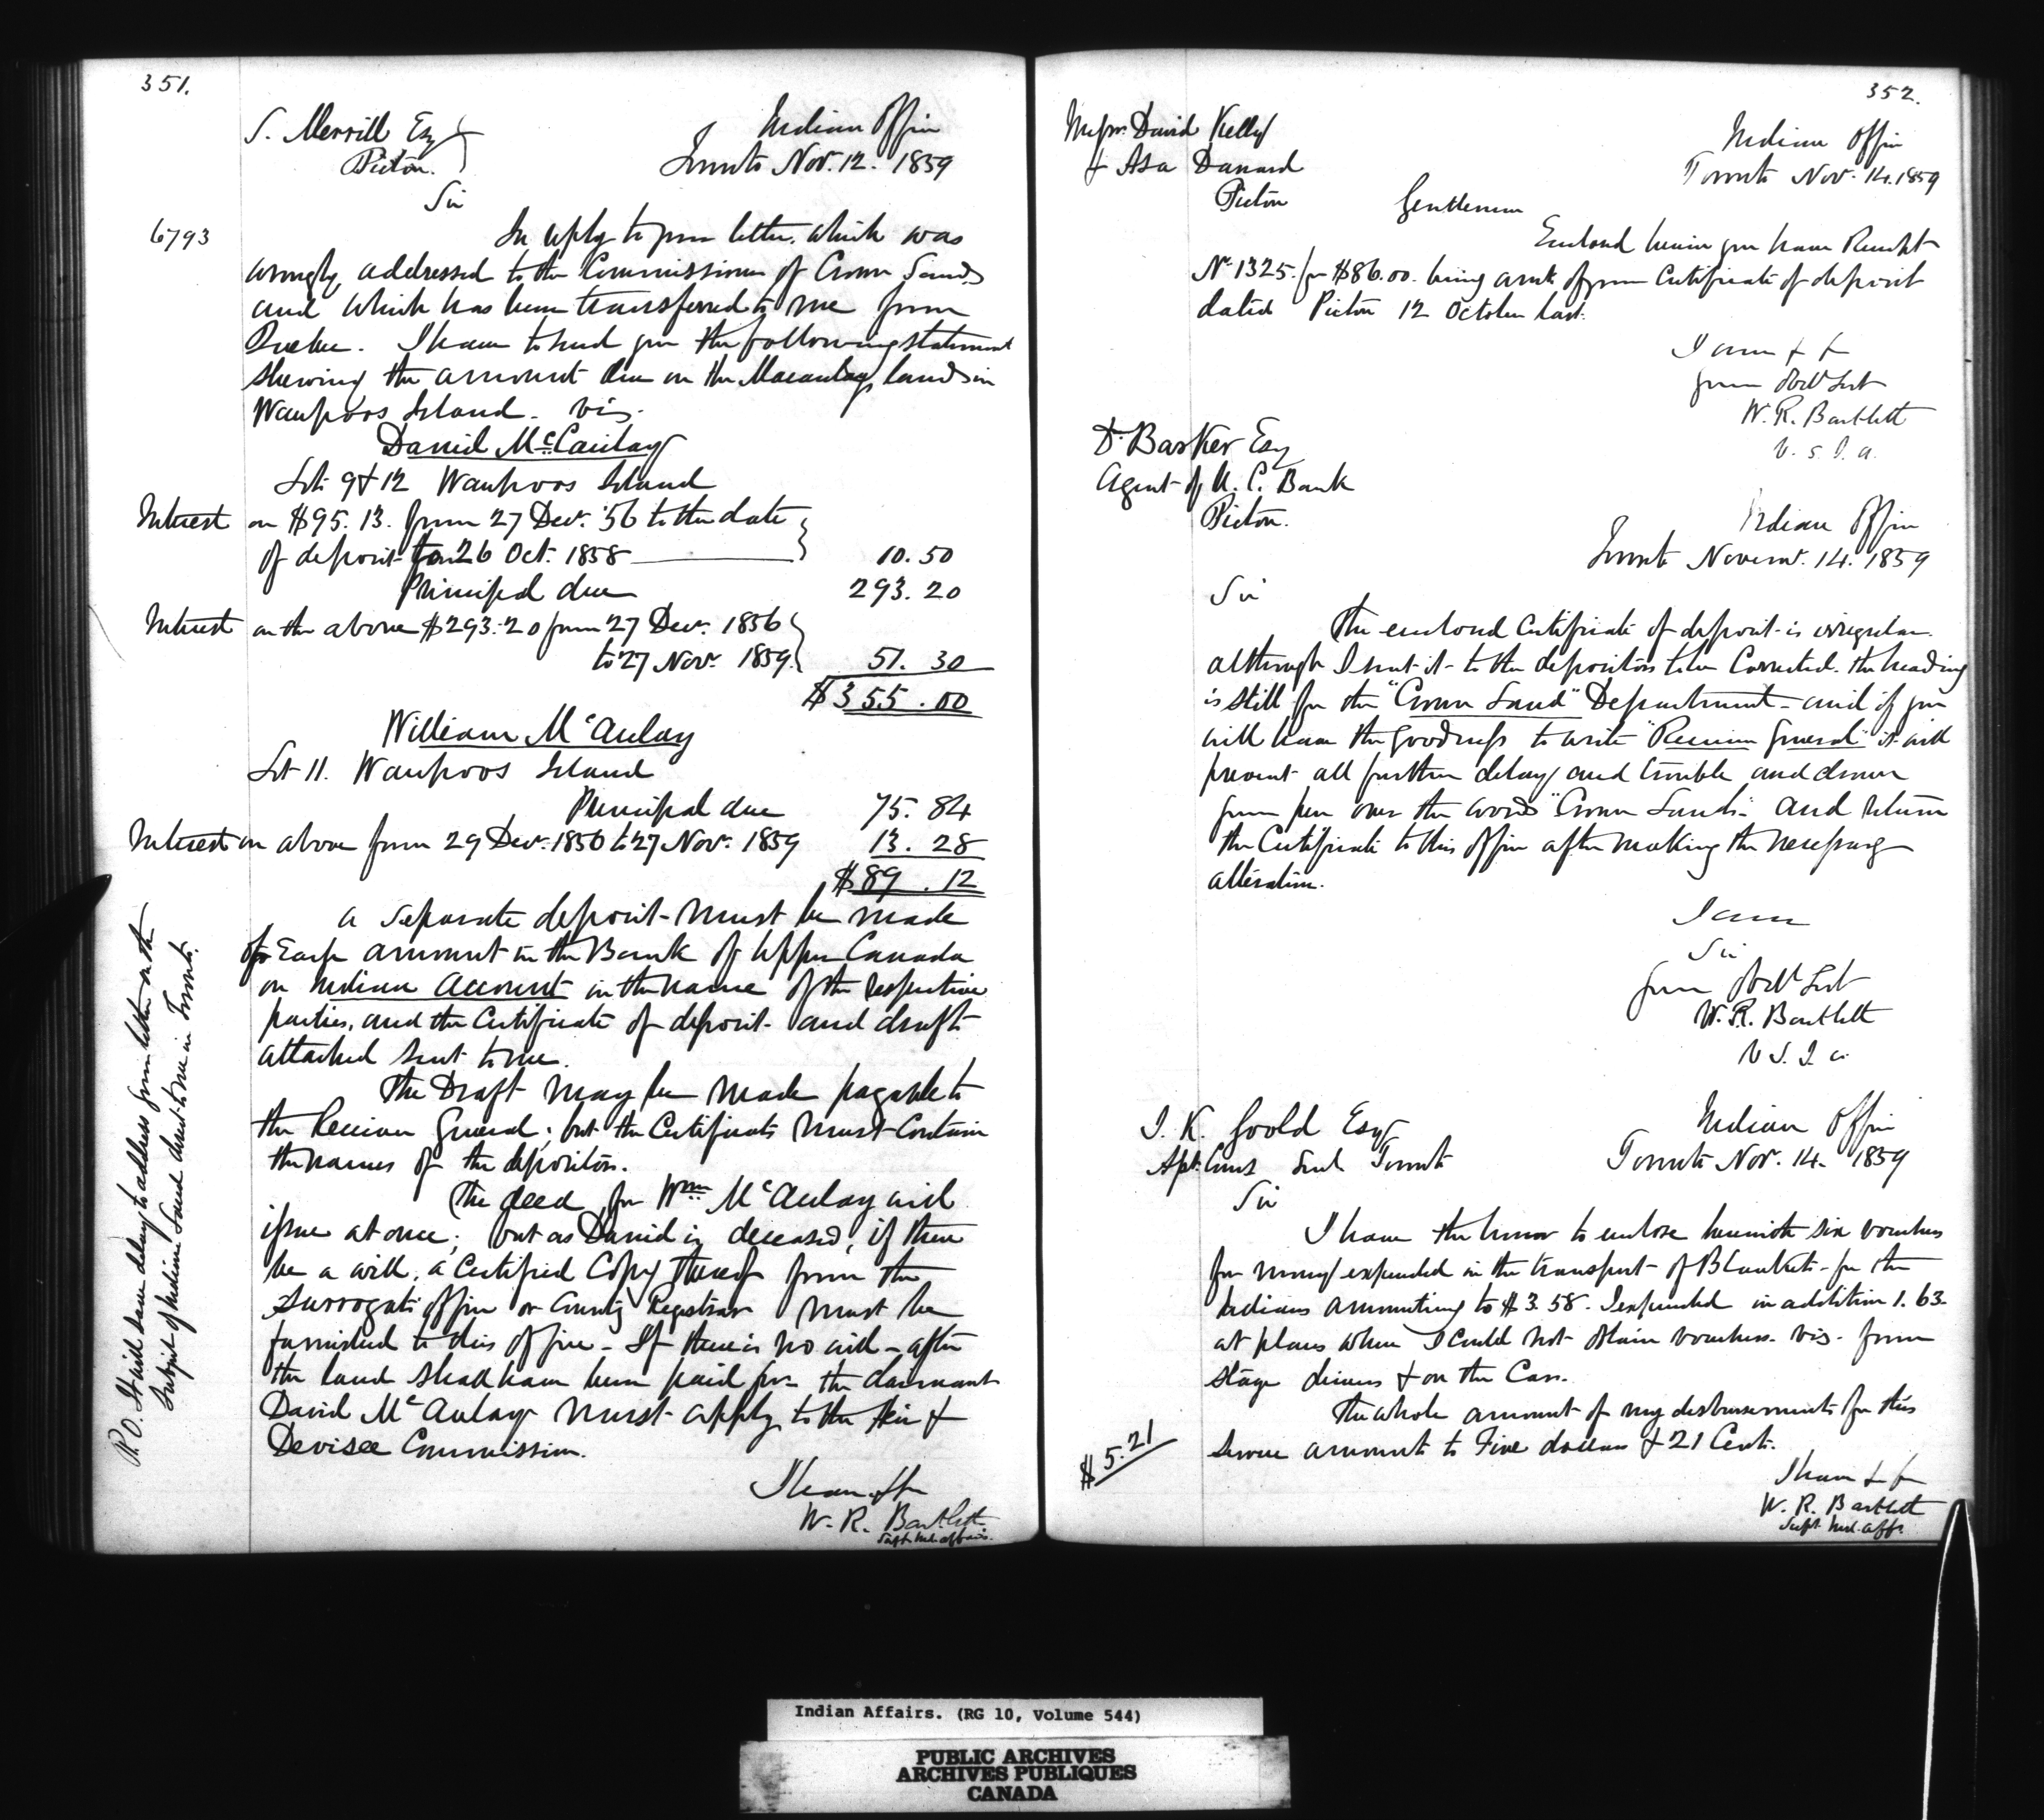 351.
S. Merrill Esq
Picton.
Indian Office
Toronto Nov. 12. 1859
Sir
6793
In reply to your letter, which was
wrongly addressed to the Commissioner of Crown Lands
and which has been transferred to me from
Quebec. I have to send you the following statement
shewing the amount due on the Macaulay lands in
Waupoos Island. viz.
Daniel McCaulay
Lots 9 & 12 Waupoos Island
Interest on $95.13. from 27 Decr. '56 to the date
of deposit 26 Oct. 1858 10.50
Principal due 293.20
Interest on the above $293.20 from 27 Decr. 1856
to 27 Novr. 1859. 51.30
$355.00
William McAulay
Lot 11. Waupoos Island
Principal due 75.84
Interest on above from 29 Decr. 1856 to 27 Novr. 1859 13.28
$89.12
A separate deposit must be made
for Each amount in the Bank of Upper Canada
on Indian Account in the name of the respective
parties, and the Certificate of deposit and draft
attached sent to me.
The Draft may be made payable to
the Receiver General; but the Certificate must contain
the names of the depositors.
The deed for Wm McAulay will
issue at once; but as Daniel is deceased, if there
be a will, a Certified Copy thereof from the
Surrogate Office or County Registrar must be
furnished to this office - If there is no will - after
the land shall have been paid for the claimant
David McAulay must apply to the Heir &
Devisee Commission.
I have &c
W. R. Bartlett
Supt Ind. Affairs.
P.O. It will save delay to address your letters on the
subject of Indian Land direct to me in Toronto.
352.
Messrs. David Kelly
& Asa Danard
Picton
Indian Office
Toronto Nov. 14. 1859
Gentlemen
Enclosed herein you have Receipt
No. 1325. for $86.00. being amt. of your Certificate of deposit
dated Picton 12 October last.
I am & &
your Obdt Servt
W. R. Bartlett
V. S. I. A.
D. Barker Esq
Agent of U. C. Bank
Picton.
Indian Office
Toronto Novemr. 14. 1859
Sir
The enclosed Certificate of deposit is irregular
although I sent it to the depositors to be Corrected. the heading
is still for the "Crown Land" Department - and if you
will have the goodness to write "Receiver General" it will
prevent all further delay and trouble and draw
your pen over the words "Crown Lands" and return
the Certificate to this office after making the necessary
alteration.
I am
Sir
your Obdt Servt
W. R. Bartlett
V. S. I. A.
I. K. Goold Esqr
Toronto
Indian Office
Toronto Nov. 14. 1859
Sir
I have the honor to enclose herewith six vouchers
for money expended in the transport of Blankets for the
Indians amounting to $3.58. I expended in addition 1.63.
at places where I could not obtain vouchers. viz. from
stage drivers & on the Cars.
The whole amount of my disbursements for this
service amounts to Five dollars & 21 Cents.
$5.21
I have &c &c
W. R. Bartlett
Supt. Ind. Affs.
Indian Affairs. (RG 10, Volume 544)
PUBLIC ARCHIVES
ARCHIVES PUBLIQUES
CANADA